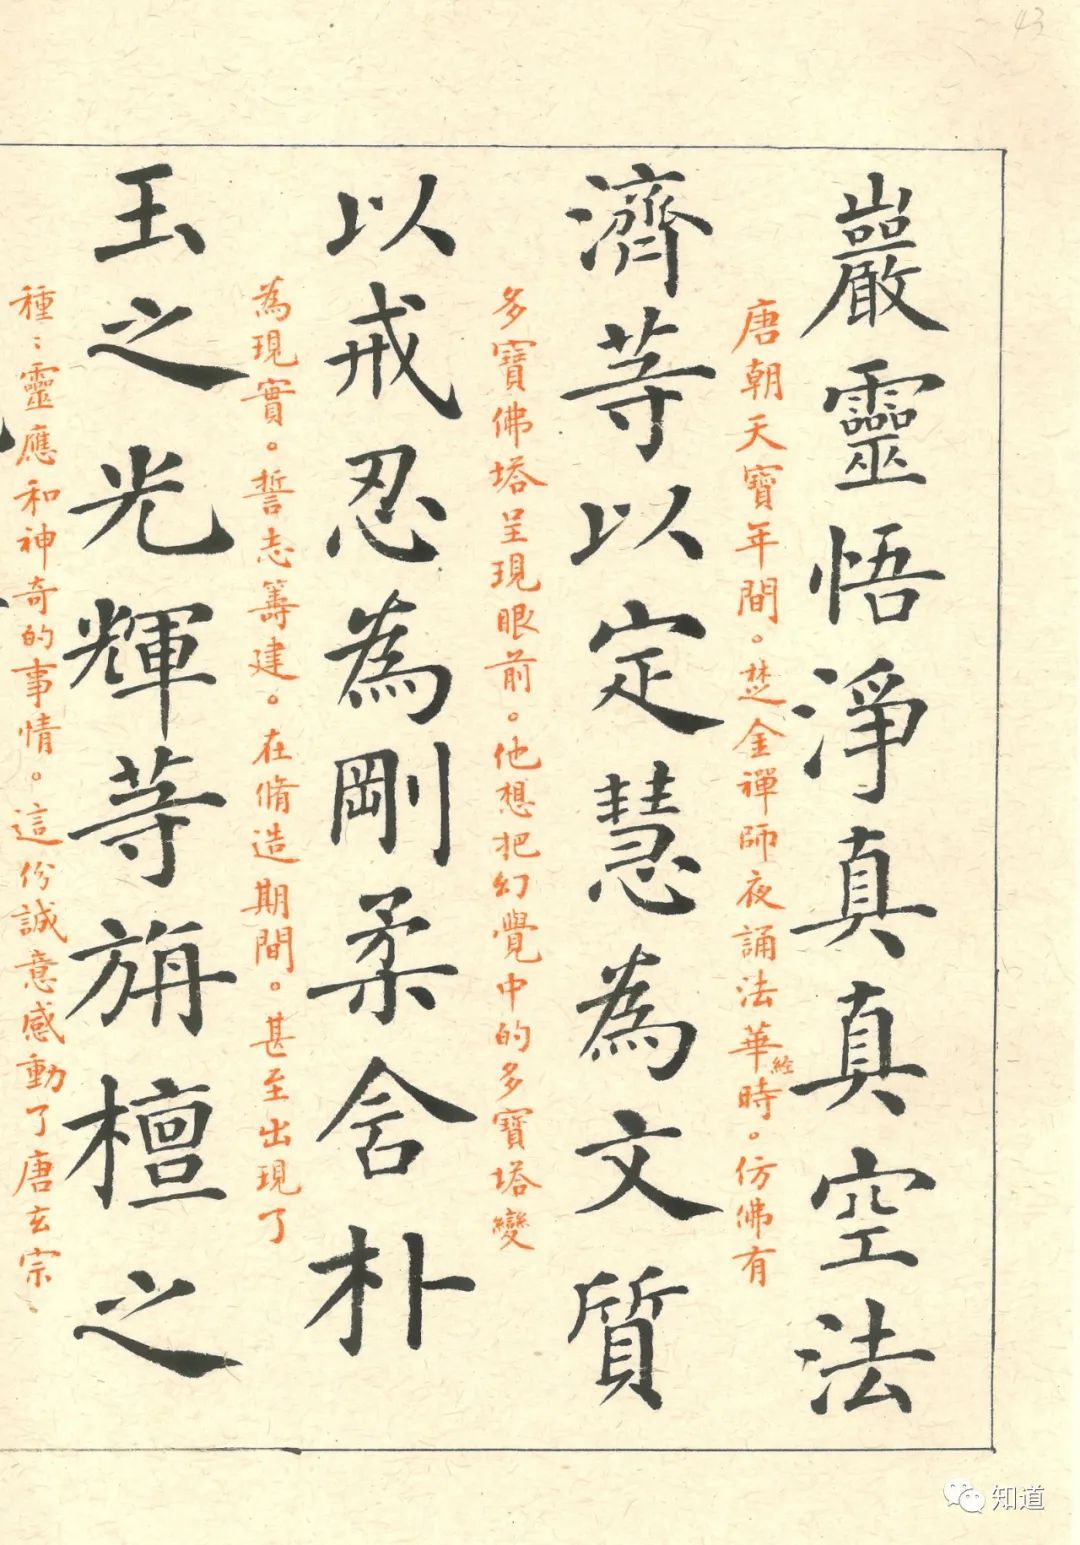 43
巖靈悟淨真真空法
唐朝天寶年間。楚金禪師夜誦法華經時。仿佛有
濟等以定慧為文質
多寶佛塔呈現眼前。他想把幻覺中的多寶塔變
以戒忍為剛柔含朴
為現實。誓志籌建。在脩造期間。甚至出現了
玉之光輝等旃檀之
種種靈應和神奇的事情。這份誠意感動了唐玄宗、
知道